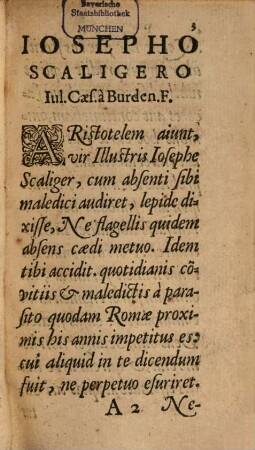 Bayerische
Staatsbibliothek
MÜNCHEN
3
IOSEPHO
SCALIGERO
Iul. Cæs. à Burden. F.
ARistotelem aiunt,
vir Illustris Iosephe
Scaliger, cum absenti sibi
maledici audiret, lepide di-
xisse, Ne flagellis quidem
absens cædi metuo. Idem
tibi accidit. quotidianis cõ-
vitiis & maledictis à para-
sito quodam Romæ proxi-
mis his annis impetitus es:
cui aliquid in te dicendum
fuit, ne perpetuo esuriret.
A 2 Ne-